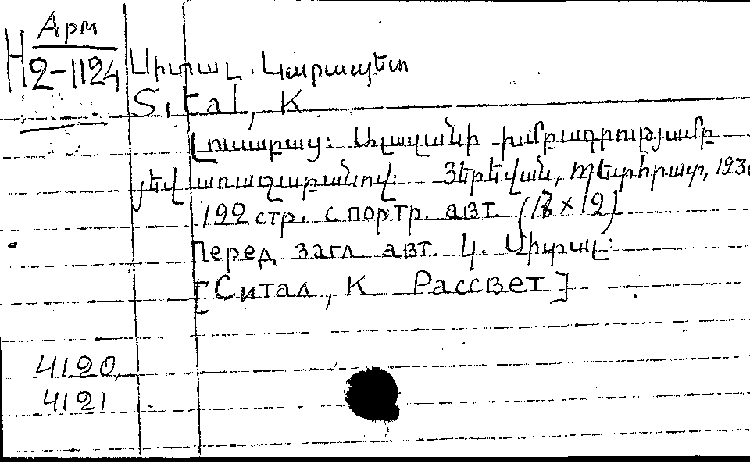 Арм
Н 2-1124
Սիտալ. Կարապետ
Sital, K
Լուսաբաց: Ալազանի խմբագրությամբ
յեվ առաջաբանով: Յերեվան, Պետհրատ, 193
192 стр. с портр. авт. (18 x 12)
Перед загл. авт. Կ. Սիտալ:
[Ситал, К Рассвет]
4120
4121